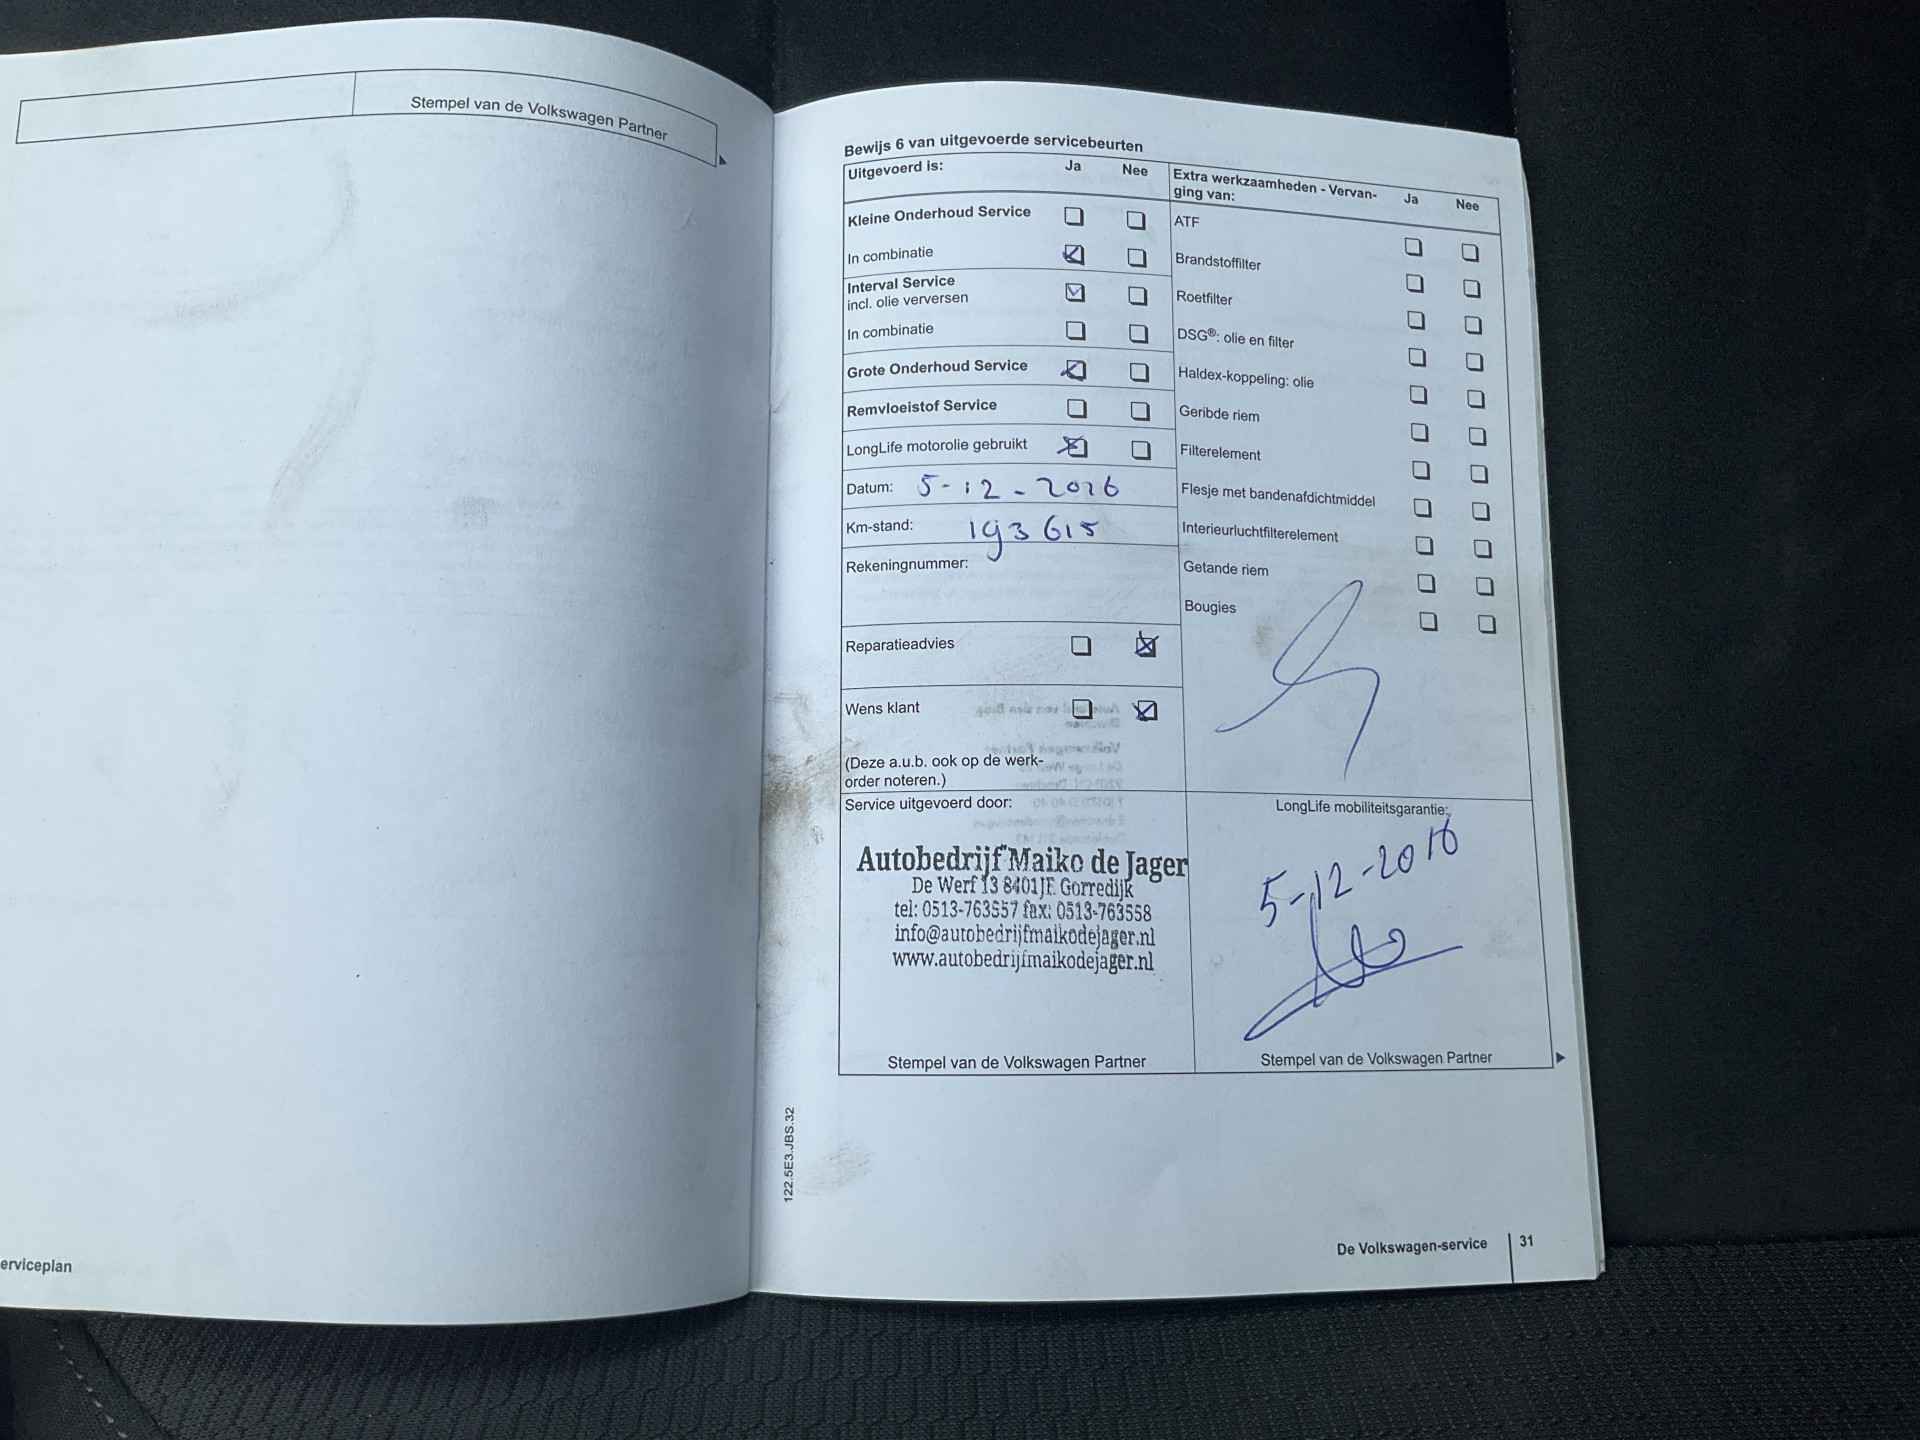 Stempel van de Volkswagen Partner
erviceplan
Bewijs 6 van uitgevoerde servicebeurten
Uitgevoerd is: Ja Nee
Kleine Onderhoud Service
In combinatie
Interval Service
incl. olie verversen
In combinatie
Grote Onderhoud Service
Remvloeistof Service
LongLife motorolie gebruikt
Datum: 5-12-2016
Km-stand: 193615
Rekeningnummer:
Reparatieadvies
Wens klant
(Deze a.u.b. ook op de werk-
order noteren.)
Extra werkzaamheden - Vervan-
ging van: Ja Nee
ATF
Brandstoffilter
Roetfilter
DSG®: olie en filter
Haldex-koppeling: olie
Geribde riem
Filterelement
Flesje met bandenafdichtmiddel
Interieurluchtfilterelement
Getande riem
Bougies
Service uitgevoerd door:
Autobedrijf Maiko de Jager
De Werf 13 8401JE Gorredijk
tel: 0513-763557 fax: 0513-763558
info@autobedrijfmaikodejager.nl
www.autobedrijfmaikodejager.nl
Stempel van de Volkswagen Partner
LongLife mobiliteitsgarantie:
5-12-2016
Stempel van de Volkswagen Partner
122.5E3.JBS.32
De Volkswagen-service 31